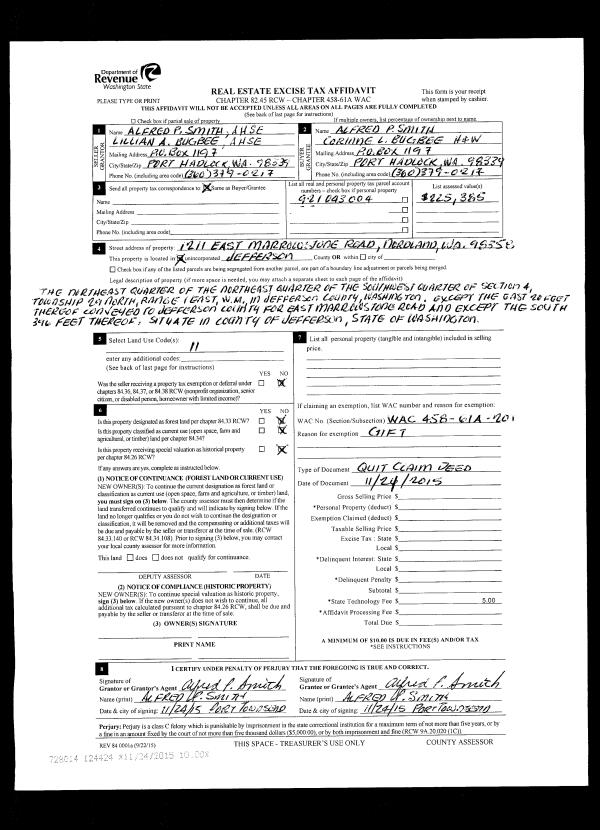 Department of
Revenue
Washington State
REAL ESTATE EXCISE TAX AFFIDAVIT
This form is your receipt
when stamped by cashier.
PLEASE TYPE OR PRINT
CHAPTER 82.45 RCW – CHAPTER 458-61A WAC
THIS AFFIDAVIT WILL NOT BE ACCEPTED UNLESS ALL AREAS ON ALL PAGES ARE FULLY COMPLETED
(See back of last page for instructions)
☐ Check box if partial sale of property
If multiple owners, list percentage of ownership next to name.
1 Name ALFRED P. SMITH, AHSE
LILLIAN A. BUGBEE, AHSE
SELLER GRANTOR
Mailing Address P.O. BOX 1197
City/State/Zip PORT HADLOCK, WA. 98339
Phone No. (including area code) (360)379-0217
2 Name ALFRED P. SMITH
CORINNE L. BUGBEE H&W
BUYER GRANTEE
Mailing Address P.O. BOX 1197
City/State/Zip PORT HADLOCK, WA. 98339
Phone No. (including area code) (360)379-0217
3 Send all property tax correspondence to: ☒ Same as Buyer/Grantee
Name
Mailing Address
City/State/Zip
Phone No. (including area code)
List all real and personal property tax parcel account
numbers – check box if personal property
921043004
List assessed value(s)
$225,385
4 Street address of property: 1211 EAST MARROWSTONE ROAD, NORDLAND, WA. 98358
This property is located in ☒ unincorporated JEFFERSON County OR within ☐ city of
☐ Check box if any of the listed parcels are being segregated from another parcel, are part of a boundary line adjustment or parcels being merged.
Legal description of property (if more space is needed, you may attach a separate sheet to each page of the affidavit)
THE NORTHEAST QUARTER OF THE NORTHEAST QUARTER OF THE SOUTHWEST QUARTER OF SECTION 4,
TOWNSHIP 29 NORTH, RANGE 1 EAST, W.M., IN JEFFERSON COUNTY, WASHINGTON. EXCEPT THE EAST 20 FEET
THEREOF CONVEYED TO JEFFERSON COUNTY FOR EAST MARROWSTONE ROAD AND EXCEPT THE SOUTH
346 FEET THEREOF. SITUATE IN COUNTY OF JEFFERSON, STATE OF WASHINGTON.
5 Select Land Use Code(s):
11
enter any additional codes:
(See back of last page for instructions)
YES NO
Was the seller receiving a property tax exemption or deferral under
chapters 84.36, 84.37, or 84.38 RCW (nonprofit organization, senior
citizen, or disabled person, homeowner with limited income)?
6 YES NO
Is this property designated as forest land per chapter 84.33 RCW?
Is this property classified as current use (open space, farm and
agricultural, or timber) land per chapter 84.34?
Is this property receiving special valuation as historical property
per chapter 84.26 RCW?
If any answers are yes, complete as instructed below.
(1) NOTICE OF CONTINUANCE (FOREST LAND OR CURRENT USE)
NEW OWNER(S): To continue the current designation as forest land or
classification as current use (open space, farm and agriculture, or timber) land,
you must sign on (3) below. The county assessor must then determine if the
land transferred continues to qualify and will indicate by signing below. If the
land no longer qualifies or you do not wish to continue the designation or
classification, it will be removed and the compensating or additional taxes will
be due and payable by the seller or transferor at the time of sale. (RCW
84.33.140 or RCW 84.34.108). Prior to signing (3) below, you may contact
your local county assessor for more information.
This land ☐ does ☐ does not qualify for continuance.
DEPUTY ASSESSOR DATE
(2) NOTICE OF COMPLIANCE (HISTORIC PROPERTY)
NEW OWNER(S): To continue special valuation as historic property,
sign (3) below. If the new owner(s) does not wish to continue, all
additional tax calculated pursuant to chapter 84.26 RCW, shall be due and
payable by the seller or transferor at the time of sale.
(3) OWNER(S) SIGNATURE
PRINT NAME
7 List all personal property (tangible and intangible) included in selling
price.
If claiming an exemption, list WAC number and reason for exemption:
WAC No. (Section/Subsection) WAC 458-61A-201
Reason for exemption
GIFT
Type of Document QUIT CLAIM DEED
Date of Document 11/24/2015
Gross Selling Price $
*Personal Property (deduct) $
Exemption Claimed (deduct) $
Taxable Selling Price $
Excise Tax : State $
Local $
*Delinquent Interest: State $
Local $
*Delinquent Penalty $
Subtotal $
*State Technology Fee $ 5.00
*Affidavit Processing Fee $
Total Due $
A MINIMUM OF $10.00 IS DUE IN FEE(S) AND/OR TAX
*SEE INSTRUCTIONS
8 I CERTIFY UNDER PENALTY OF PERJURY THAT THE FOREGOING IS TRUE AND CORRECT.
Signature of
Grantor or Grantor's Agent Alfred P. Smith
Name (print) ALFRED P. SMITH
Date & city of signing: 11/24/15 PORT TOWNSEND
Signature of
Grantee or Grantee's Agent Alfred P. Smith
Name (print) ALFRED P. SMITH
Date & city of signing: 11/24/15 PORT TOWNSEND
Perjury: Perjury is a class C felony which is punishable by imprisonment in the state correctional institution for a maximum term of not more than five years, or by
a fine in an amount fixed by the court of not more than five thousand dollars ($5,000.00), or by both imprisonment and fine (RCW 9A.20.020 (1C)).
REV 84 0001a (9/22/15)
THIS SPACE - TREASURER'S USE ONLY
COUNTY ASSESSOR
728014 124424 *11/24/2015 10.00X